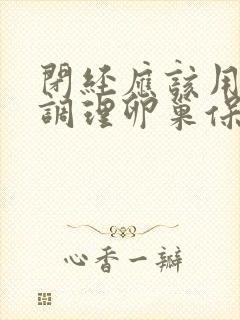 閉經應該用
調理卵巢保
心香一瓣